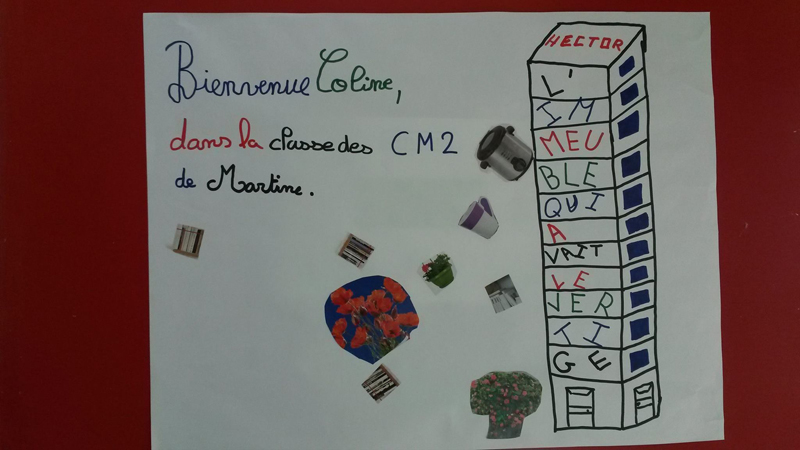 Bienvenue Coline,
dans la classe des CM2
de Martine.
HECTOR
L'
IM
MEU
BLE
QUI
A
VAIT
LE
VER
TI
GE